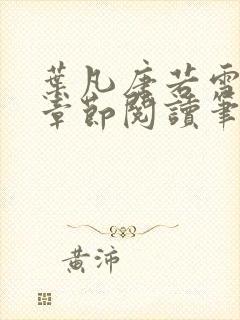 葉凡唐若雪
章節閱讀筆
黃沛